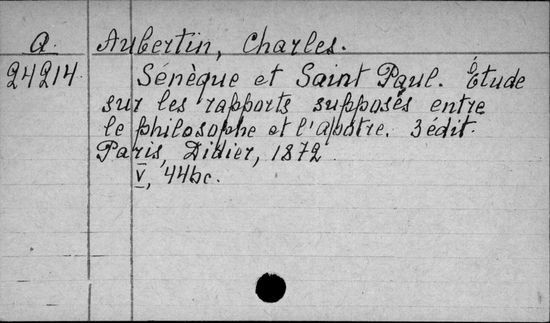 A. Aubertin, Charles.
24214. Sénèque et Saint Paul. Étude
sur les rapports supposés entre
le philosophe et l'apôtre. 3 édit.
Paris, Didier, 1872.
V, 446c.